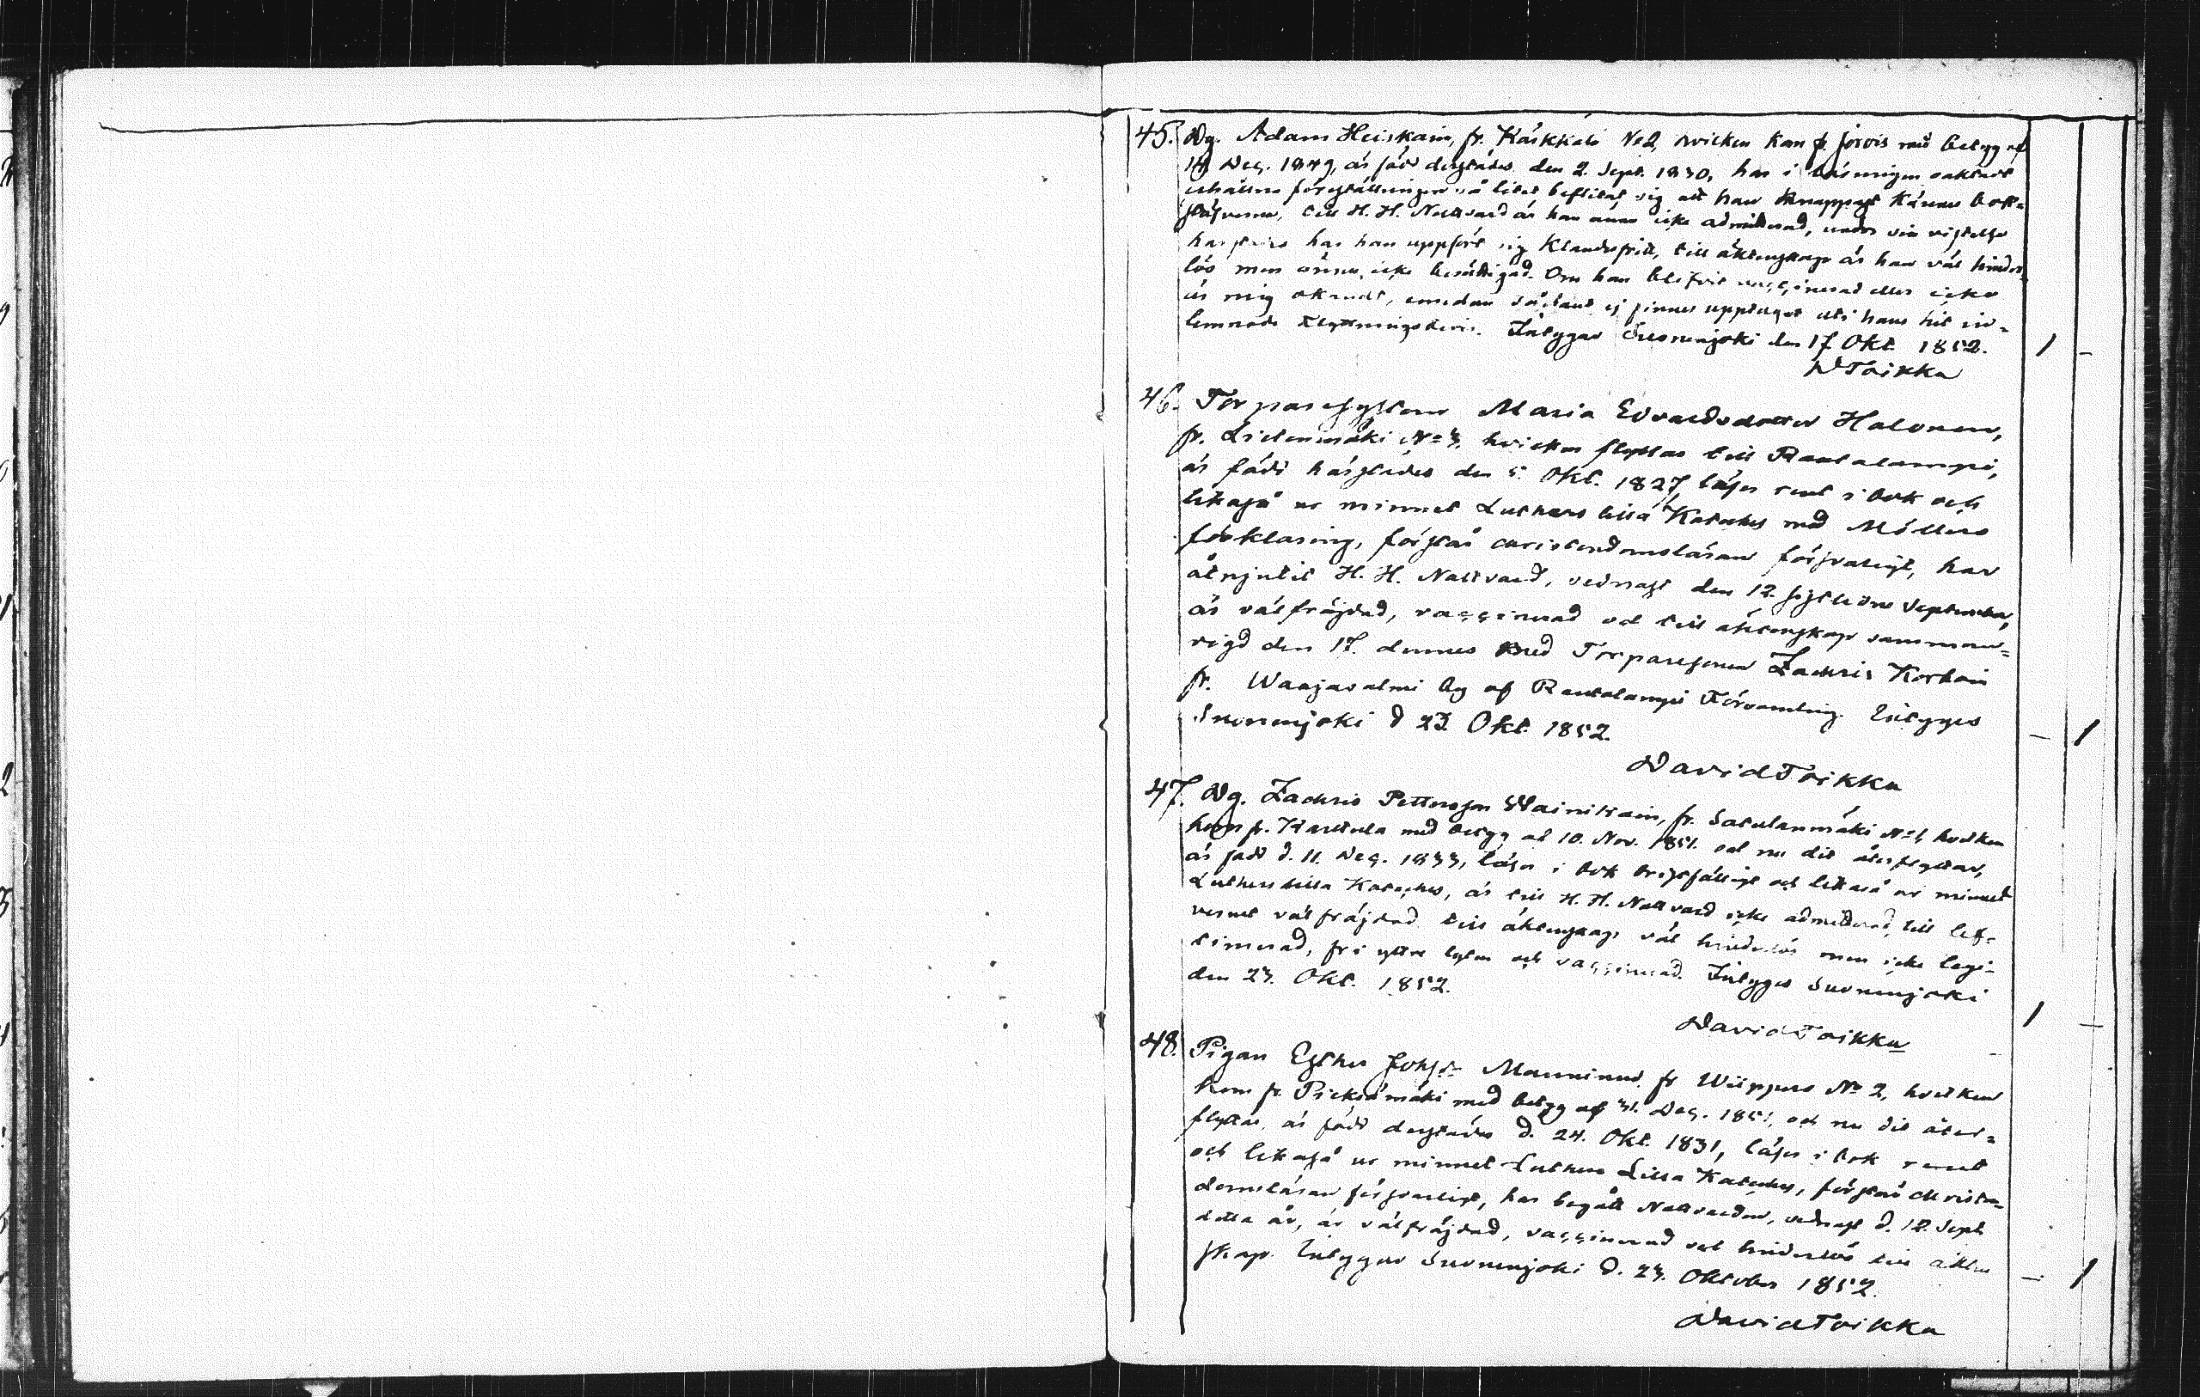 45. Dg. Adam Heiskain, fr. Kärkkäi No 2, hvilken kom fr. Jorois med betyg af
14 Dec. 1849, är född derstädes den 2. Sept. 1830, har i läsningen oaktadt
erhållna föreställningar så litet beflitat sig att han knappast känner bok-
stäfverna, till H. H. Nattvard är han ännu icke admitterad, under sin vistelse
härstädes har han uppfört sig klanderfritt, till äktenskap är han väl hinder-
lös men ännu icke berättigad. Om han blifvit vaccinerad eller icke
är mig okändt, emedan sådant ej finnes upptaget uti hans hit in-
lemnade Flyttningsbevis. Intygar Suonenjoki den 17 Okt. 1852.
D Toikka
46. Torparesystern Maria Edvardsdotter Halonen,
fr. Lietenmäki No 3, hvilken flyttar till Rautalampi,
är född härstädes den 5. Okt. 1827, läser rent i bok och
likaså ur minnet Luthers lilla Kateches med Möllers
förklaring, förstår christendomsläran försvarligt, har
åtnjutit H. H. Nattvard, sednast den 12. sistledne September,
är välfräjdad, vaccinerad och till äktenskap samman-
vigd den 17. dennes med Torparesonen Zachris Korhoin
fr. Waajasalmi by af Rautalampi Församling. Intygas
Suonenjoki d 23 Okt. 1852.
David Toikka
47. Dg. Zachris Pettersson Wainikain, fr. Satulanmäki No 1, hvilken
kom fr. Karttula med betyg af 10. Nov. 1851. och nu dit återflyttar,
är född d. 11. Dec. 1833, läser i bok bristfälligt och likaså ur minnet
Luthers lilla Kateches, är till H. H. Nattvard icke admitterad, till lef-
vernet välfräjdad till äktenskap väl hinderlös men icke legi-
timerad, fri yttre lyten och vaccinerad. Intygas Suonenjoki
den 23. Okt. 1852.
David Toikka
48. Pigan Esther Johsdr Manninen, fr. Wiipperö No 2, hvilken
kom fr. Pieksämäki med betyg af 31. Dec. 1851, och nu dit åter-
flyttar, är född derstädes d. 24. Okt. 1831, läser i bok rent
och likaså ur minnet Luthers Lilla Kateches, förstår christen-
domsläran försvarligt, har begått Nattvarden, sednast d. 12. Sept.
detta år, är välfräjdad, vaccinerad och hinderlös till äkten
skap. Intygar Suonenjoki d. 23. Oktober 1852.
David Toikka